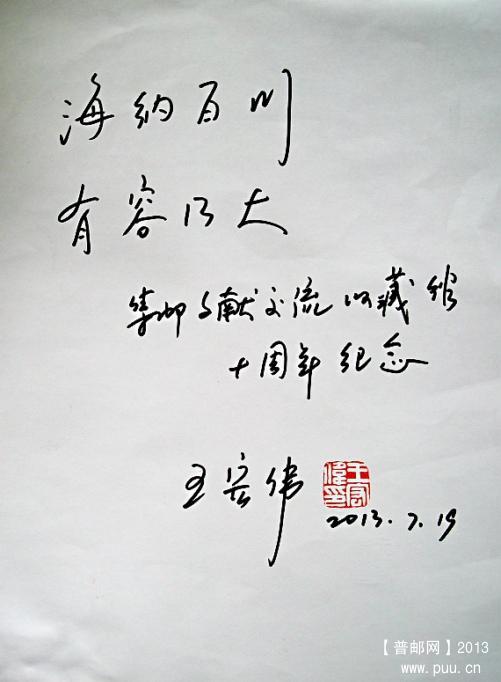 海纳百川
有容乃大
集邮文献交流收藏馆
十周年纪念
王宏伟
2013.7.19
【普邮网】2013
www.puu.cn